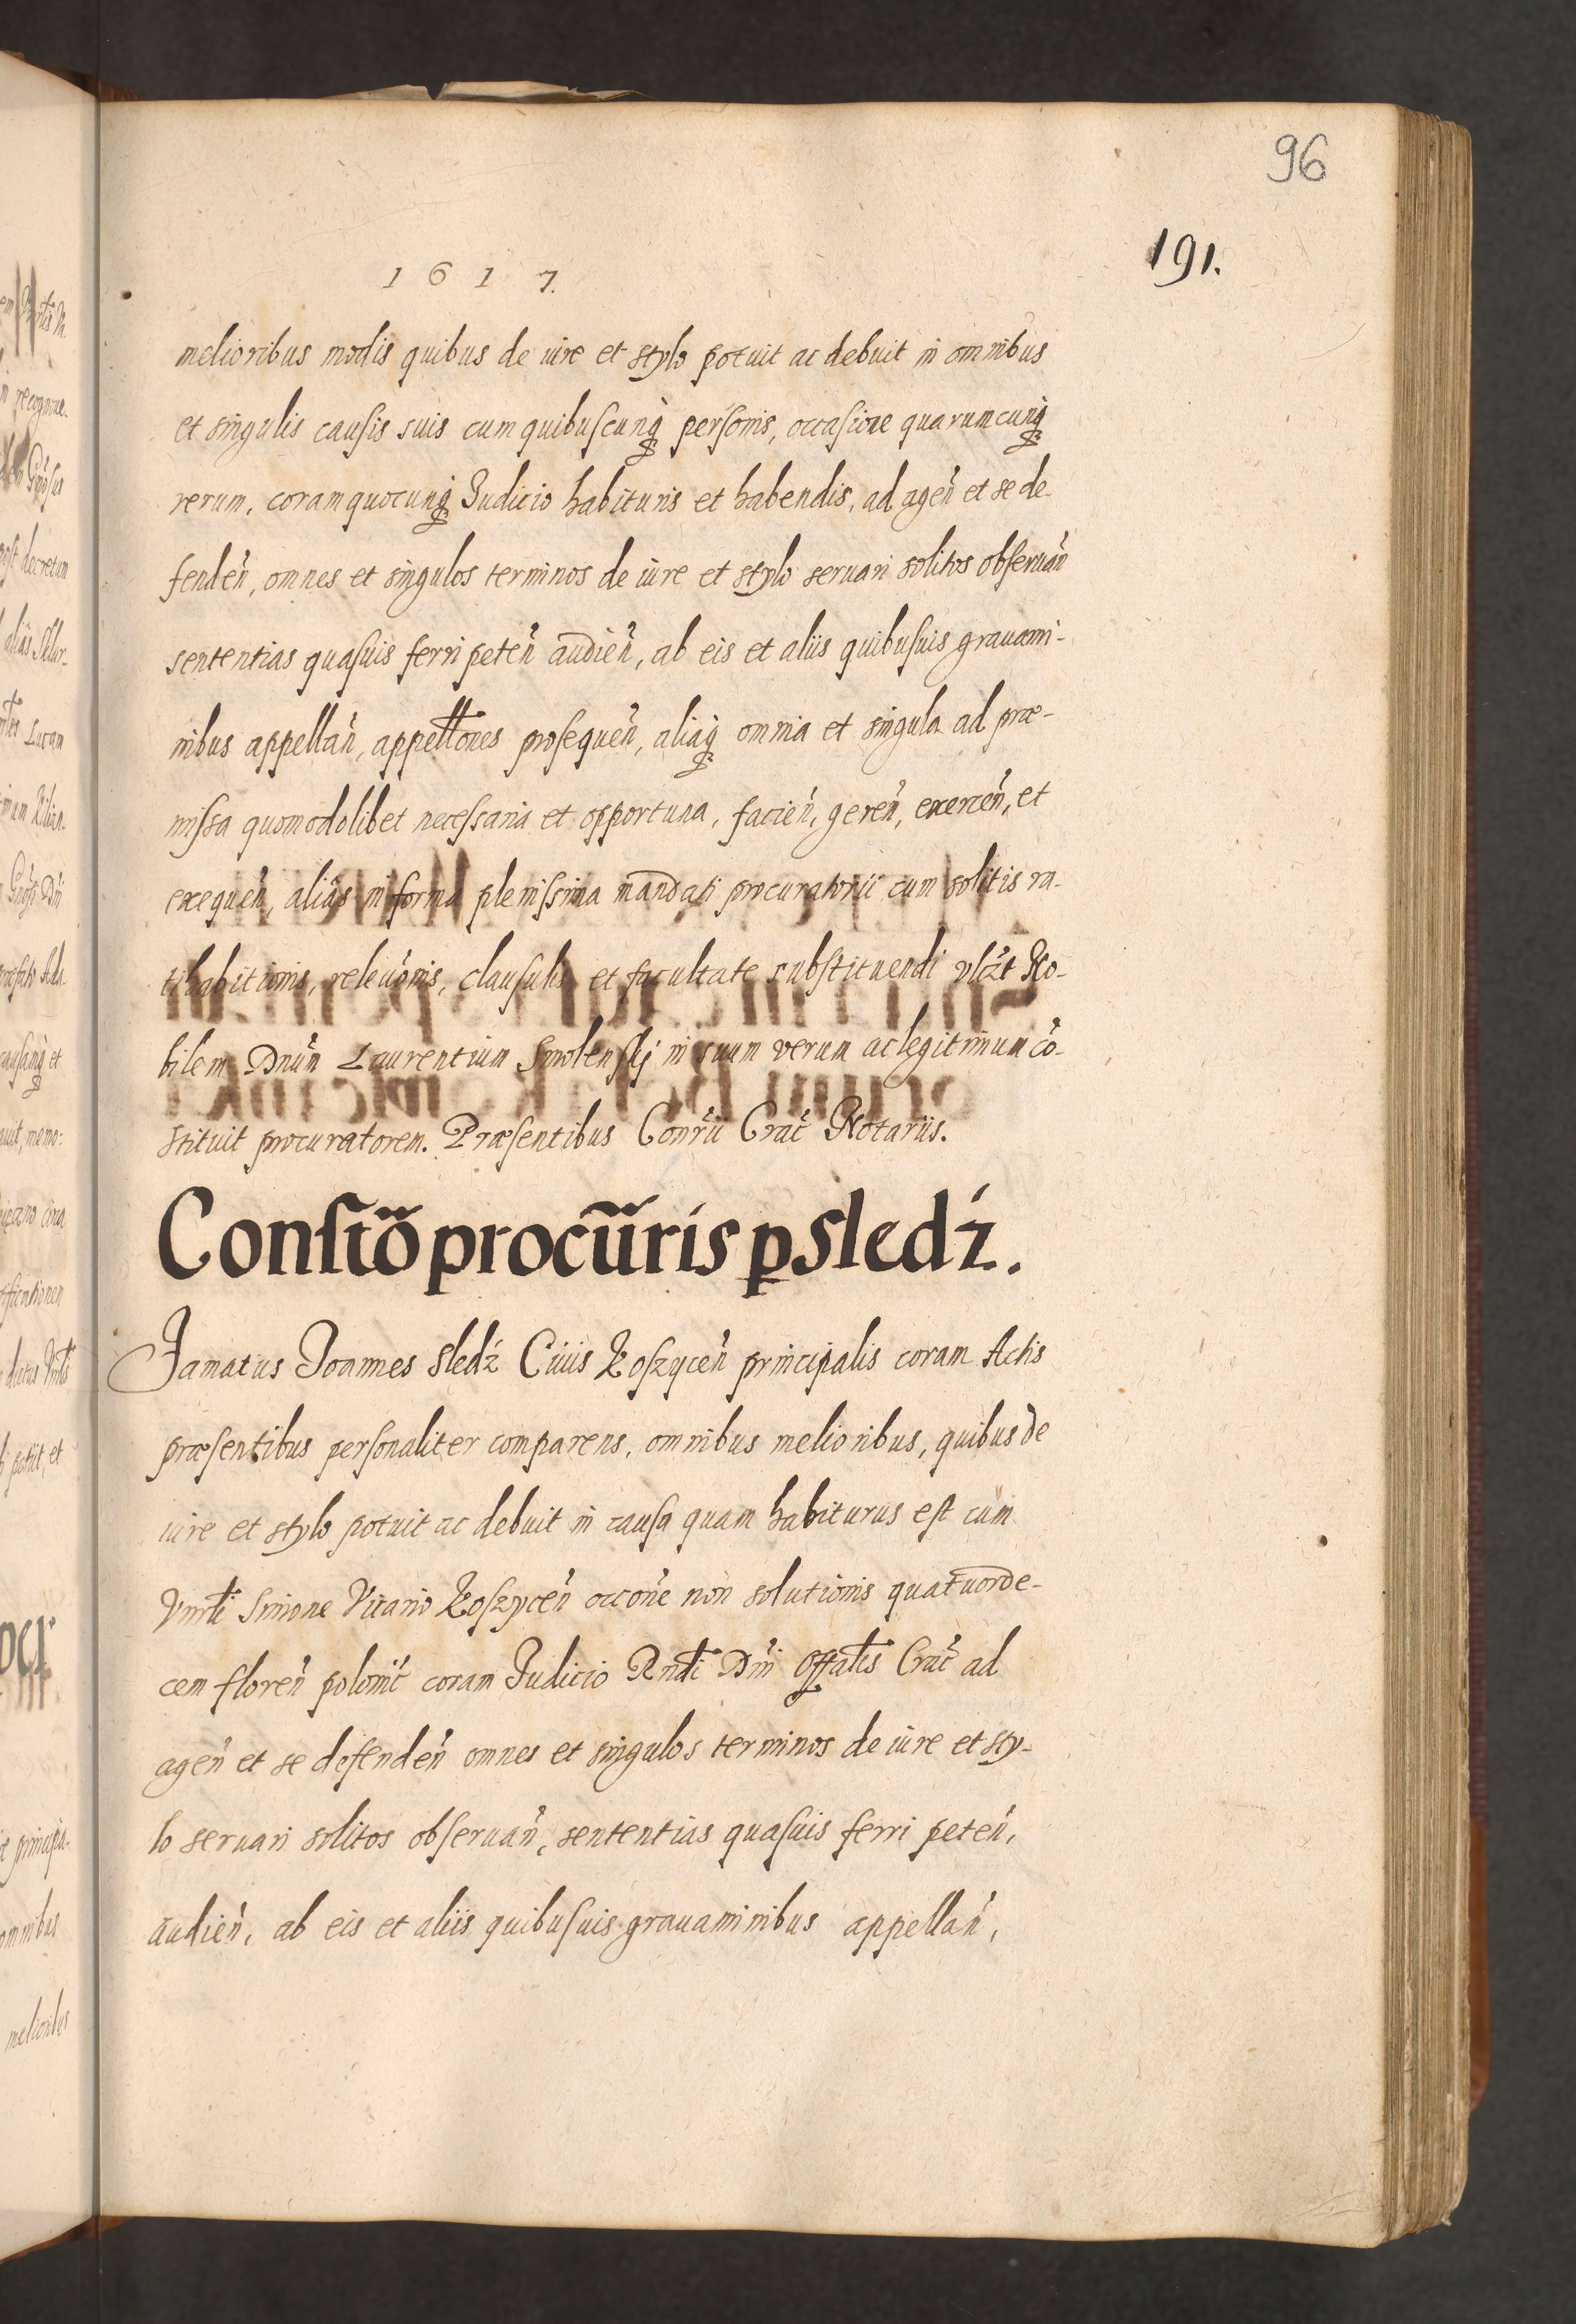 96
191.
1617.
melioribus modis quibus de iure et stylo potuit ac debuit in omnibus
et singulis causis suis cum quibuscunq̃ personis, occasione quarumcunq̃
rerum, coram quocunq̃ Judicio habituris et habendis, ad ageñ et se de-
fendeñ, omnes et singulos terminos de iure et stylo seruari solitos obseruañ
sententias quasuis ferri peteñ audieñ, ab eis et aliis quibusuis grauami-
nibus appellañ, appelltões prosequeñ, aliaq̃ omnia et singula ad præ-
missa quomodolibet necessaria et opportuna, facieñ, gereñ, exerceñ, et
exequeñ, aliàs in forma plenissima mandati procuratorii cum solitis ra-
tihabitionis, releuõnis, clausulis et facultate substituendi vlczt No-
bilem Dnũn Laurentium Smolenskj in suum verum ac legitimum cõ-
stituit procuratorem. Præsentibus Conr̃ii Crac̃ Notariis.
Constõ procũris p Sledź.
Famatus Joannes Sledź Ciuis Koszyceñ principalis coram Actis
præsentibus personaliter comparens, omnibus melioribus, quibus de
iure et stylo potuit ac debuit in causa quam habiturus est cum
Vnrli Simone Vicario Koszyceñ occõne non solutionis quatuorde-
cem floreñ polonic̃ coram Judicio Rndi Dñi Offalis Crac̃ ad
ageñ et se defendeñ omnes et singulos terminos de iure et sty-
lo seruari solitos obseruañ, sententias quasuis ferri peteñ,
audieñ, ab eis et aliis quibusuis grauaminibus appellañ,